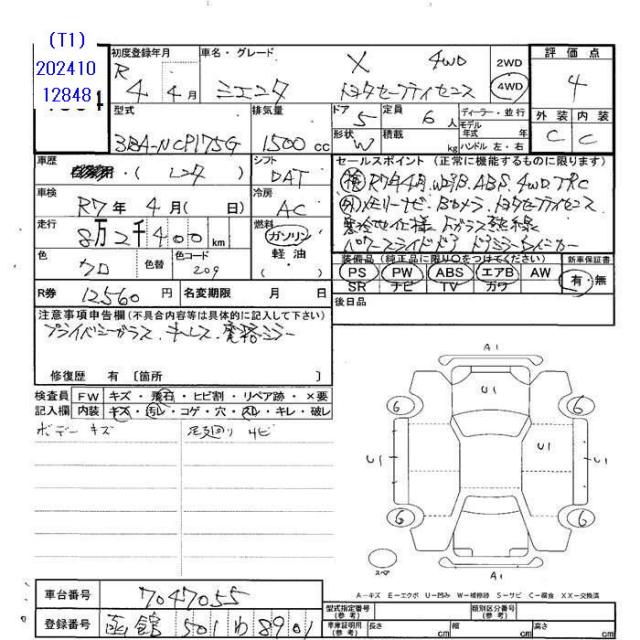 (T1)
202410
12848
初度登録年月
R 4年 4月
車名・グレード
X 4WD
シエンタ トヨタセーフティセンス
2WD
4WD
評価点
4
外装 内装
C C
型式
3BA-NCP175G
排気量
1500 cc
ドア 5
形状 W
定員 6人
積載 kg
ディーラー・並行
モデル年式 年
ハンドル 左・右
車歴
自家用・( レンタ )
シフト
DAT
車検
R7年 4月( 日)
冷房
AC
走行
8万2千400km
燃料
ガソリン
軽油
( )
色
クロ
色替
色コード
209
R券 12560円
名変期限 月 日
セールスポイント (正常に機能するものに限ります)
検 R7年4月. WエアB. ABS. 4WD TRC
外 メモリーナビ Bカメラ トヨタセーフティセンス
寒冷地仕様 Fガラス熱線
パワースライドドア ドアミラーウインカー
装備品 (純正品に限り○をつけてください)
PS PW ABS エアB AW
SR ナビ TV カワ
新車保証書
有・無
後日品
注意事項申告欄(不具合内容等は具体的に記入して下さい)
プライバシーガラス. キーレス. 電格ミラー
修復歴 有 〔箇所 〕
検査員記入欄
FW キズ・飛石・ヒビ割・リペア跡・×要
内装 キズ・汚レ・コゲ・穴・スレ・キレ・破レ
ボデー キズ
足廻り サビ
A1
U1
6 6
U1 U1 U1
6 6
スペア
A1
A-キズ E-エクボ U-凹み W-補修跡 S-サビ C-腐食 XX-交換済
車台番号 7047055
登録番号 函館 501 わ 8901
型式指定番号(参考)
類別区分番号(参考)
車庫証明用(参考) 長さ cm 幅 cm 高さ cm